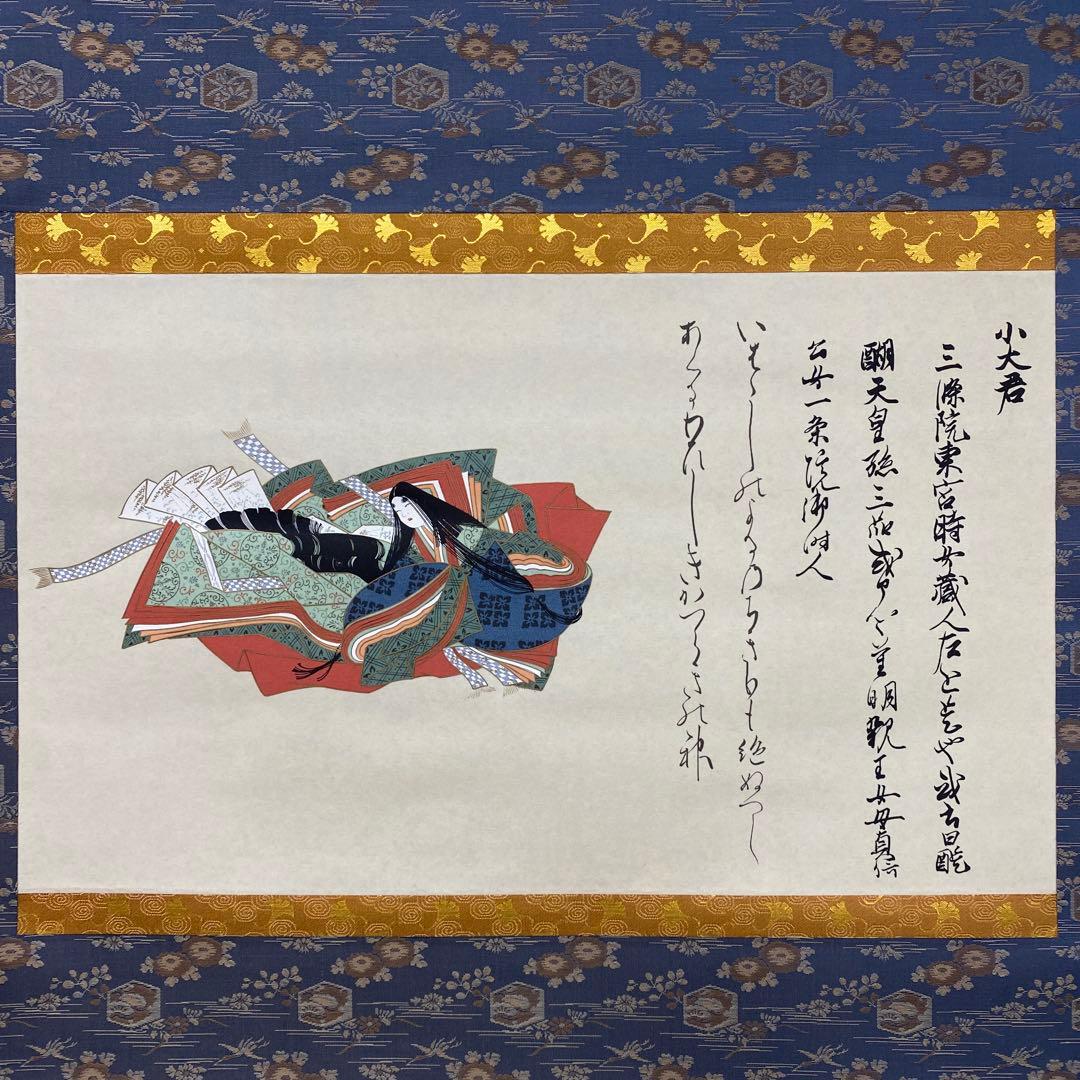 小大君
三條院東宮時女蔵人左近是也或曰醍
醐天皇孫三品式ア卿重明親王女母貞信
公女一条院御時人
いはゝしのよるのちきりも絶ぬへし
あくるわひしきかつらきの神